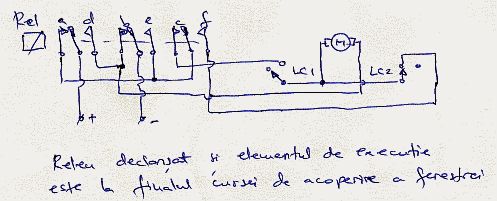 Rel a d b e c f
M
LC1 LC2
+ -
Releu declanșat și elementul de execuție
este la finalul cursei de acoperire a ferestrei